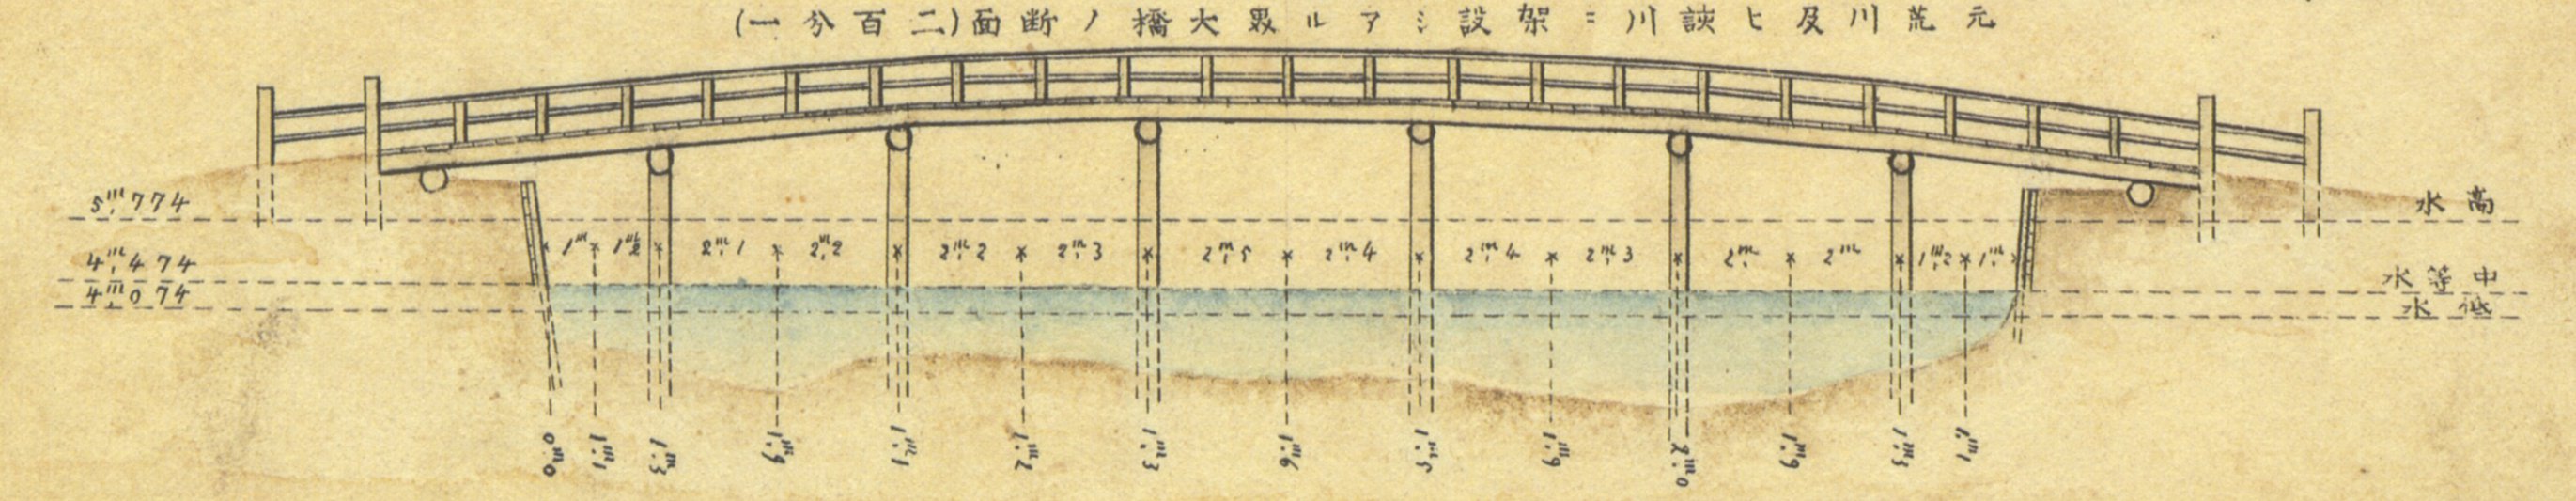 元荒川及ヒ談川ニ架設シアル最大橋ノ断面(二百分一)
5.m774
高水
4.m474
中等水
4.m074
低水
1m 1.m2 2.m1 2.m2 2.m2 2.m3 2.m5 2.m4 2.m4 2.m3 2.m 2m 1.m2 1.m
0.m0 1.m1 1.m3 1.m9 1.m1 1.m2 1.m3 1.m6 1.m5 1.m9 2.m0 1.m9 1.m5 1.m1